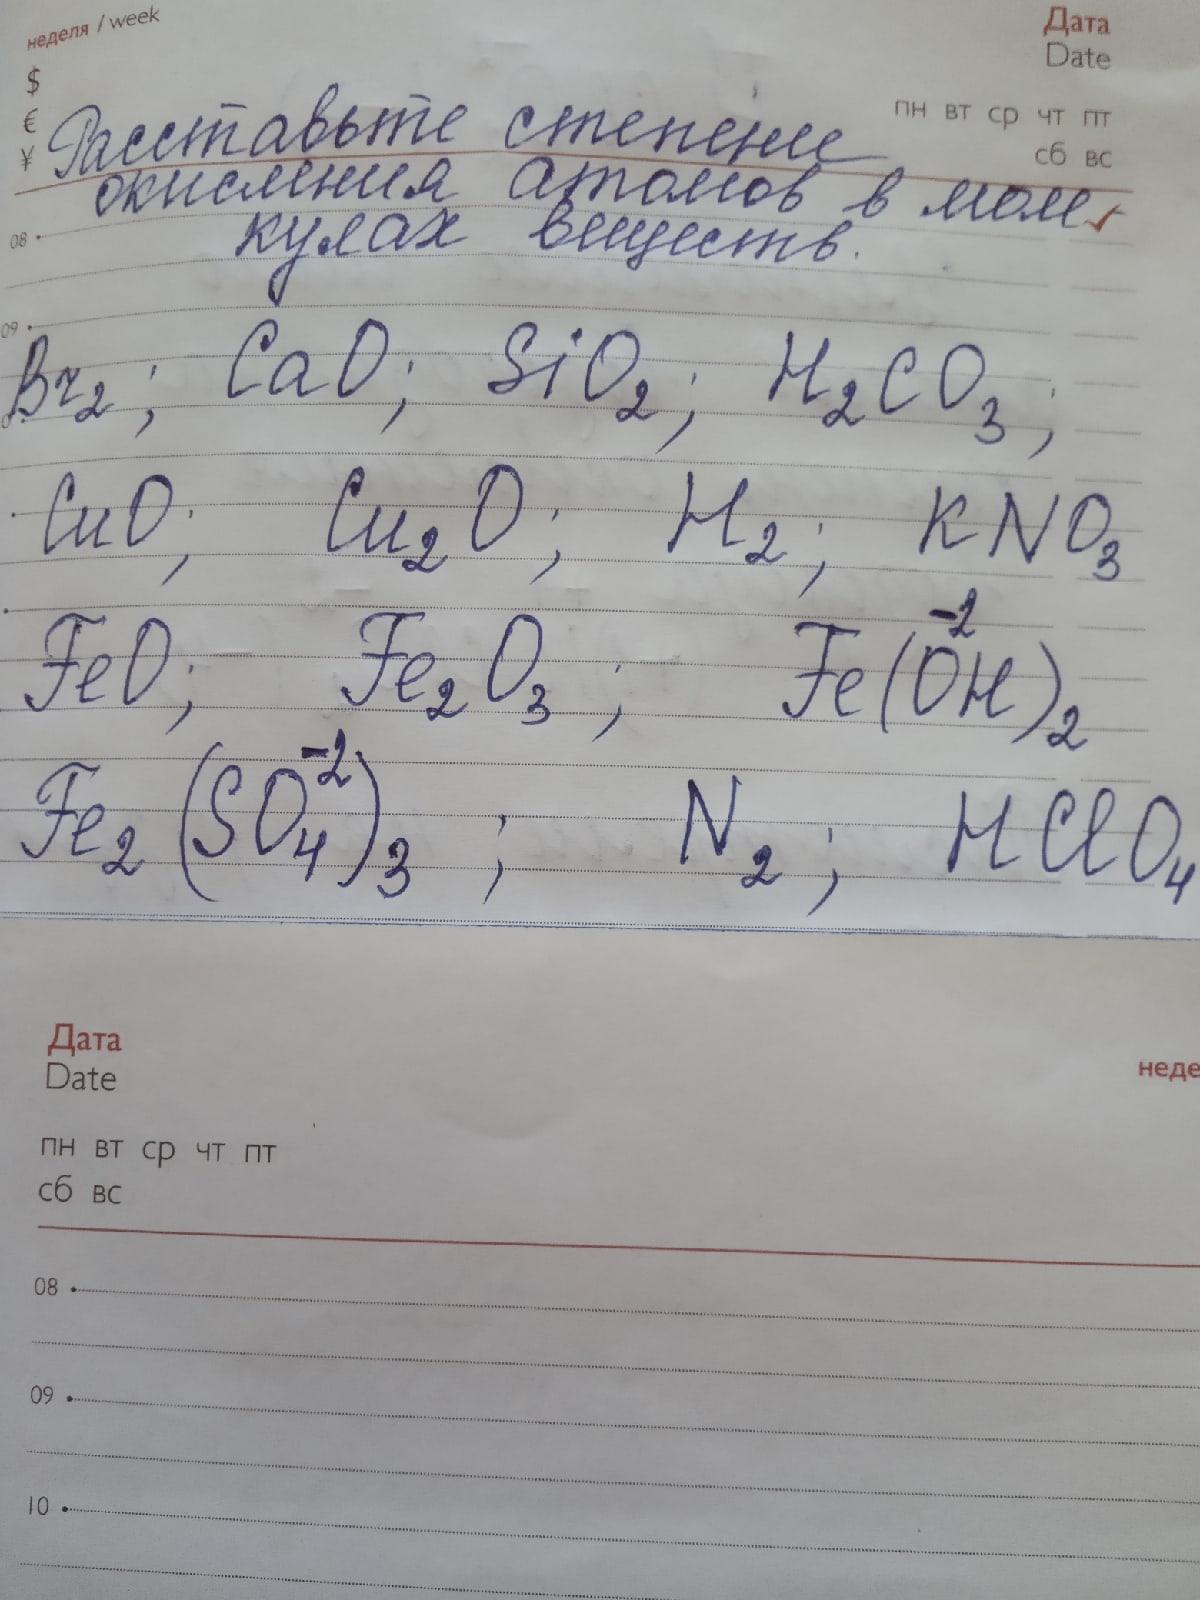 неделя / week
Дата
Date
$
€
¥
пн вт ср чт пт
сб вс
Расставьте степени
окисления атомов в моле
кулах веществ.
08
09
Br₂; CaO; SiO₂; H₂CO₃;
CuO; Cu₂O; H₂; KNO₃
FeO; Fe₂O₃; Fe(O⁻²H)₂
Fe₂(SO₄⁻²)₃; N₂; HClO₄
Дата
Date
неде
пн вт ср чт пт
сб вс
08
09
10